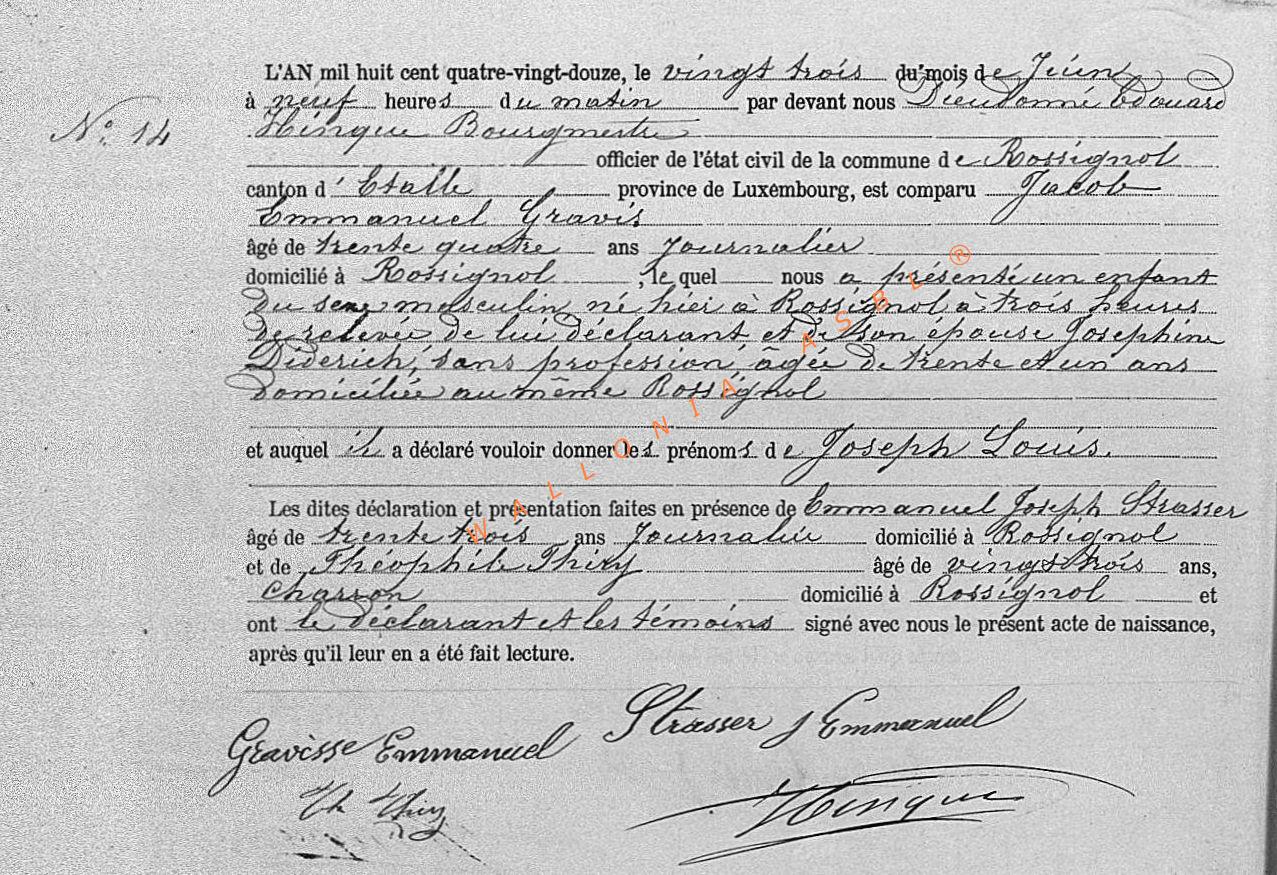 L'AN mil huit cent quatre-vingt-douze, le vingt trois du mois de Juin
à neuf heures du matin par devant nous Dieudonné Edouard
N° 14
Hinque Bourgmestre
officier de l'état civil de la commune de Rossignol
canton d'Etalle province de Luxembourg, est comparu Jacob
Emmanuel Gravis
âgé de trente quatre ans Journalier
domicilié à Rossignol, le quel nous a présenté un enfant
du sexe masculin, né hier à Rossignol, à trois heures
de relevée de lui déclarant, et de son épouse Josephine
Diderich, sans profession, âgée de trente et un ans
domiciliée au même Rossignol
et auquel il a déclaré vouloir donner les prénoms de Joseph Louis.
Les dites déclaration et présentation faites en présence de Emmanuel Joseph Strasser
âgé de trente trois ans Journalier domicilié à Rossignol
et de Théophile Thiry âgé de vingt trois ans,
charron domicilié à Rossignol et
ont le déclarant et les témoins signé avec nous le présent acte de naissance,
après qu'il leur en a été fait lecture.
Strasser J Emmanuel
Gravisse Emmanuel
Th Thiry
Hinque
WALLONIA ASBL ®